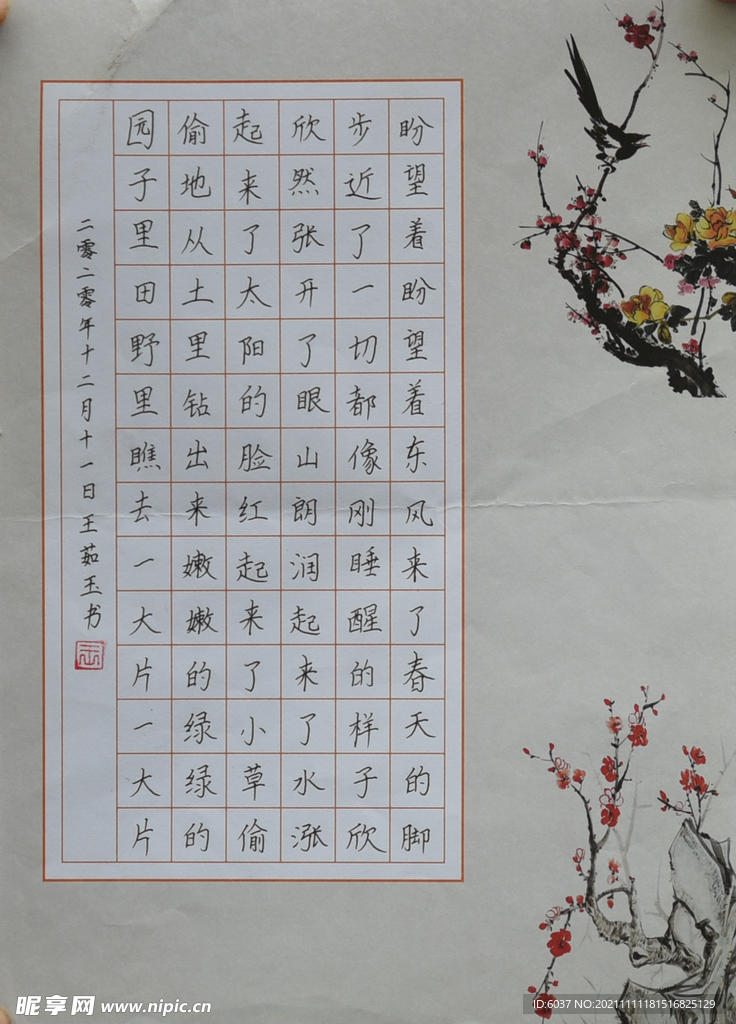 盼望着盼望着东风来了春天的脚
步近了一切都像刚睡醒的样子欣
欣然张开了眼山朗润起来了水涨
起来了太阳的脸红起来了小草偷
偷地从土里钻出来嫩嫩的绿绿的
园子里田野里瞧去一大片一大片
二零二零年十二月十一日王茹玉书
昵享网 www.nipic.cn
ID:6037 NO:20211111181516825129